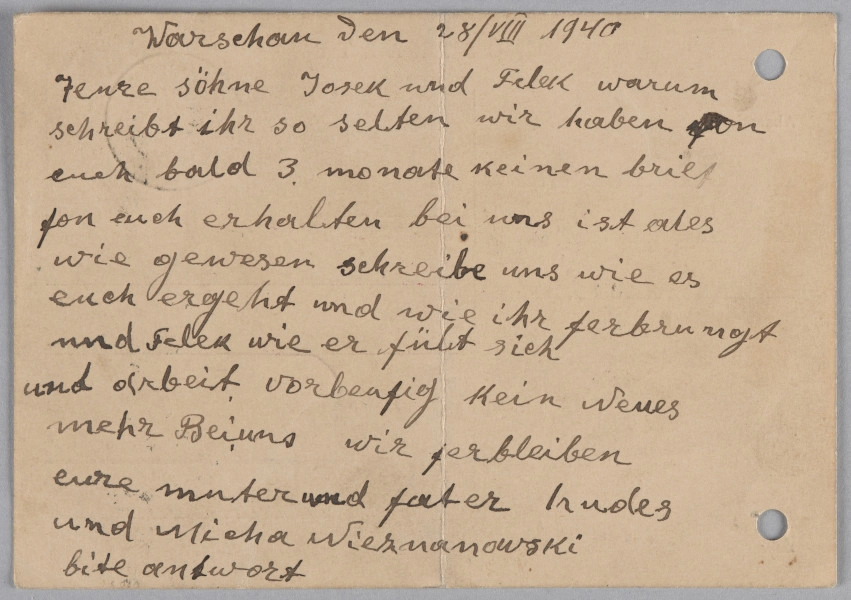 Warschau den 28/VIII 1940
Teure söhne Josek und Felek warum
schreibt ihr so selten wir haben fon
euch bald 3 monate keinen brief
fon euch erhalten bei uns ist ales
wie gewesen schreibe uns wie es
euch ergeht und wie ihr ferbrungt
und Felek wie er fült sich
und arbeit vorbeufig kein Neues
mehr Bei uns wir ferbleiben
eure muter und fater Hudes
und Micha Nieznanowski
bite antwort